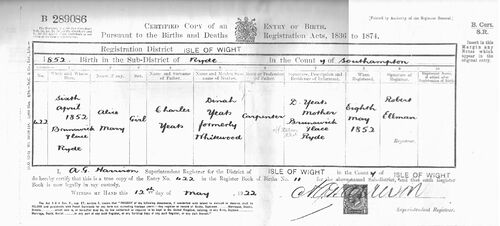 B 289086
CERTIFIED COPY of an ENTRY OF BIRTH,
Pursuant to the Births and Deaths Registration Acts, 1836 to 1874.
B. Cert.
S.R.
[Printed by Authority of the Registrar General.]
Insert in this
Margin any
Notes which
appear in the
original entry.
Registration District ISLE OF WIGHT
1852. Birth in the Sub-District of Ryde in the County of Southampton
When and Where Born
Name, if any
Sex
Name and Surname of Father
Name and Maiden Surname of Mother
Rank or Profession of Father
Signature, Description and Residence of Informant
When Registered
Signature of Registrar
622
Sixth
April
1852
Brunswick
Place
Ryde
Alice
Mary
Girl
Charles
Yeats
Dinah
Yeats
formerly
Whitewood
Carpenter
D. Yeats
Mother
Brunswick
Place
Ryde
Eighth
May
1852
Robert
Ellman
Registrar.
I, A. G. Harrison Superintendent Registrar for the District of ISLE OF WIGHT in the County of
do hereby certify that this is a true copy of the Entry No. 622 in the Register Book of Births No. 11 for the above-named Sub-district, and that such Register
Book is now legally in my custody.
WITNESS MY HAND this 12th day of May 1922
Superintendent Registrar.